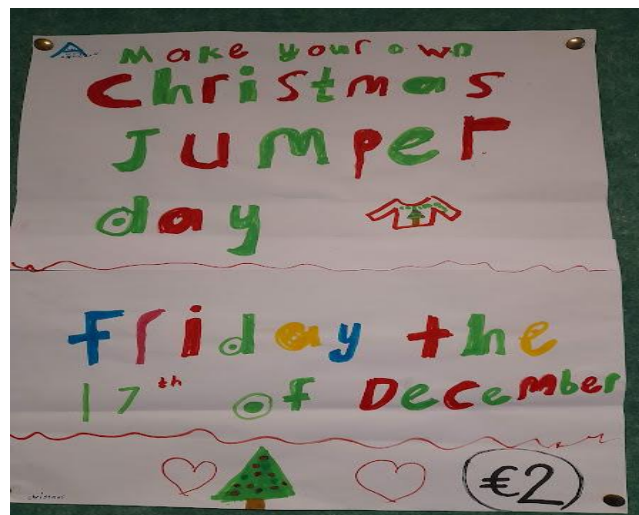 A
Make your own
Christmas
Jumper
day
Friday the
17th of December
€2